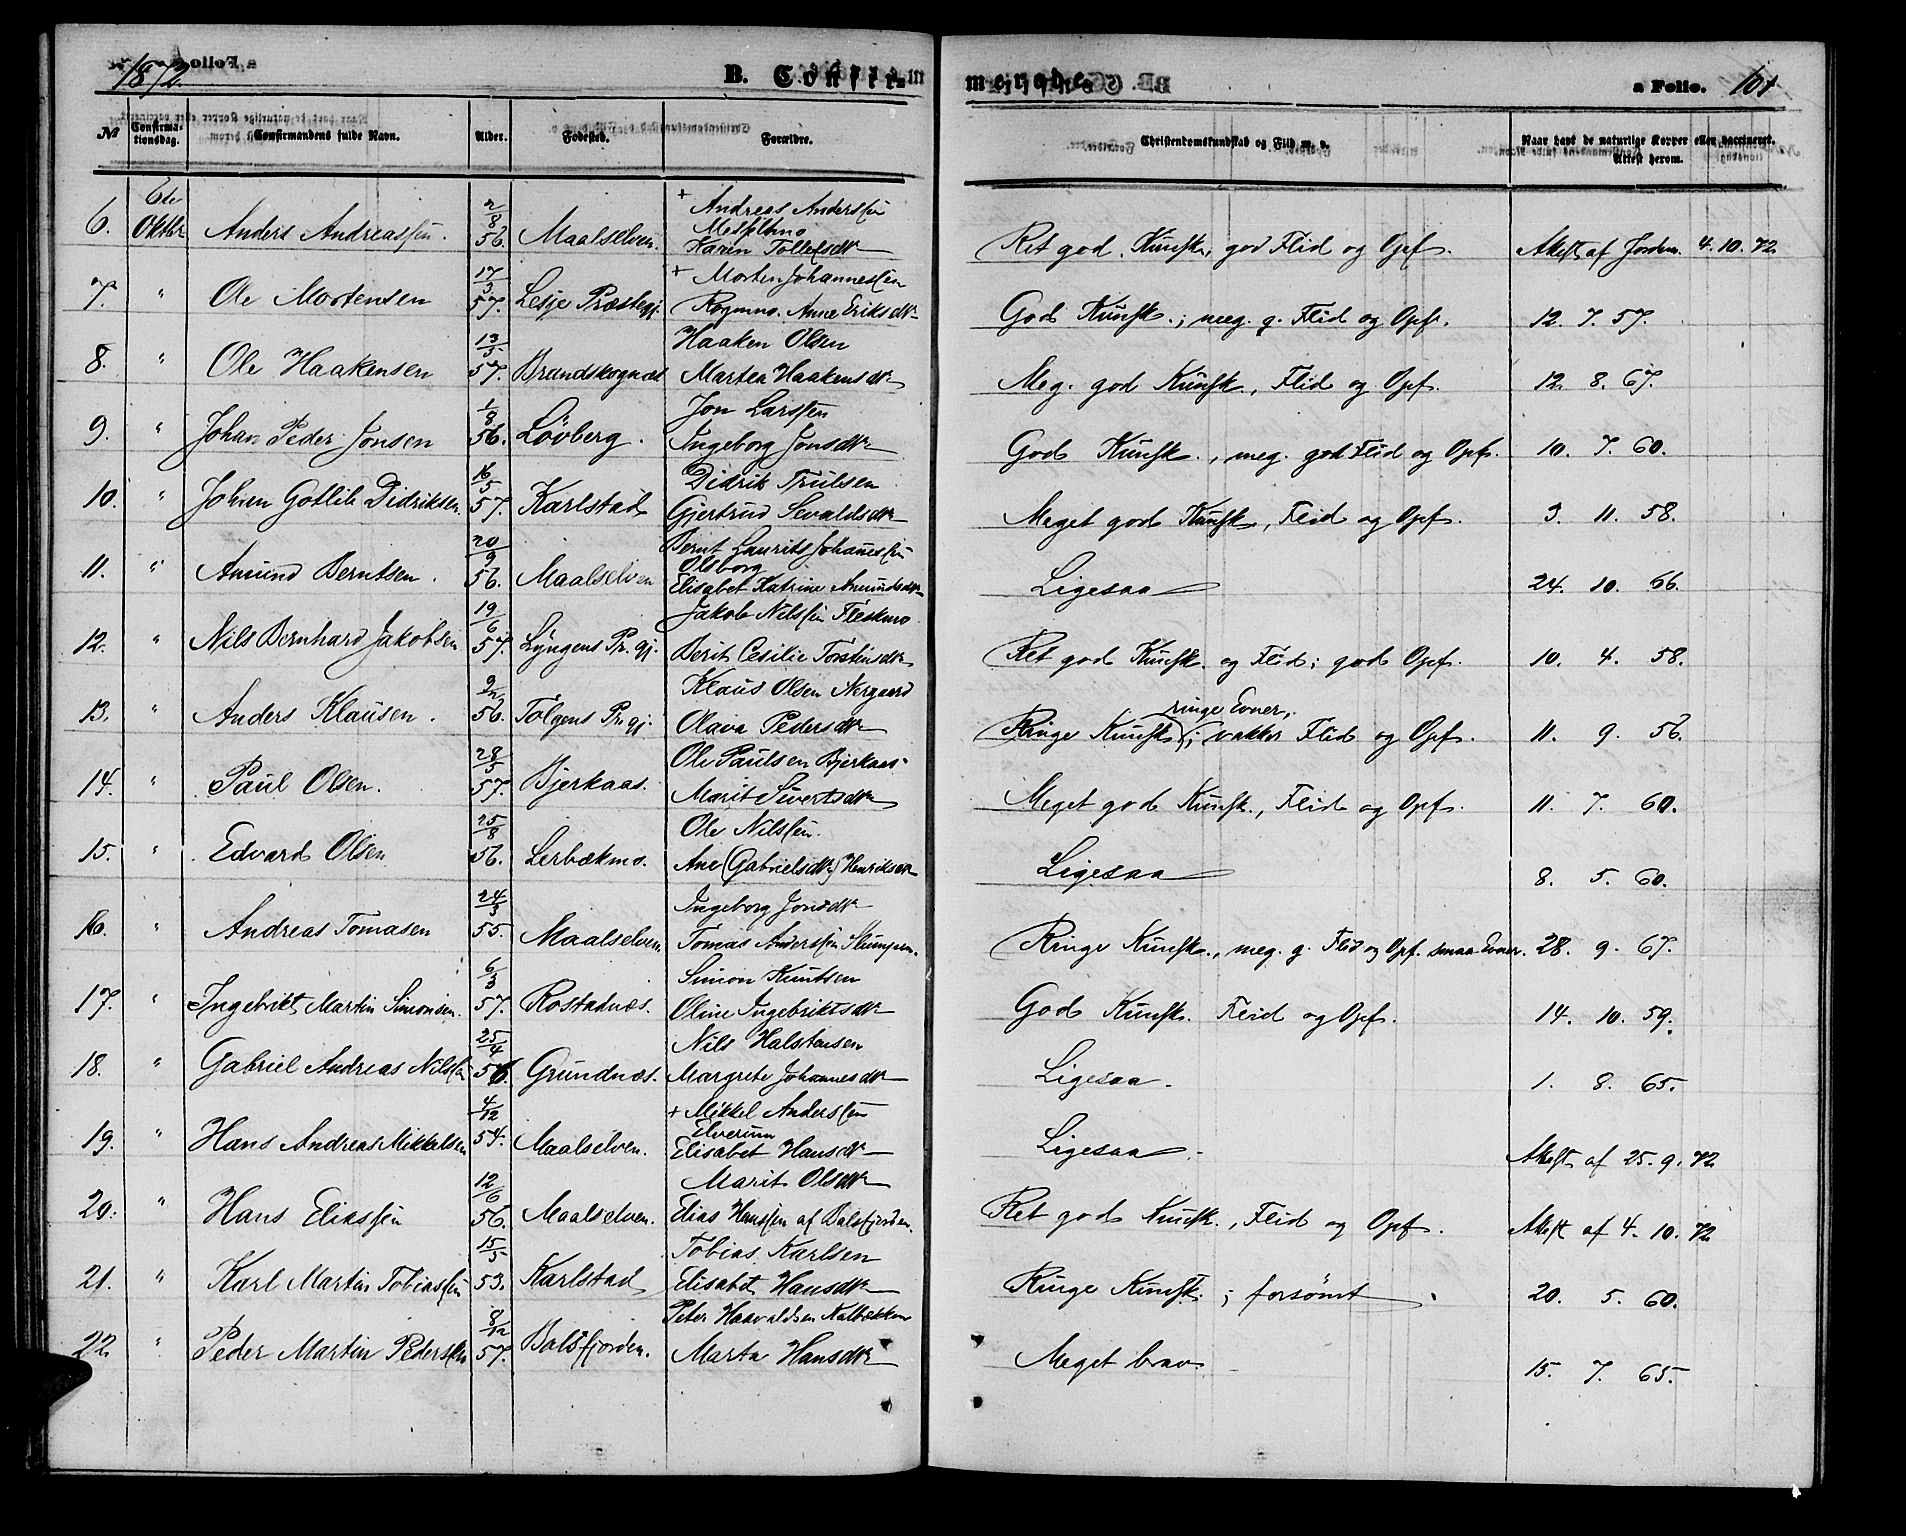 1872.
B. Confirmerede
a Folio. 101
№ Confirmationsdag. Confirmandens fulde Navn. Alder. Fødested. Forældre. Christendomskundskab og Flid m. v. Naar havt de naturlige Kopper eller vaccineret. Attest herom.
6. 6te Oktbr Anders Andreassen. 2/8 56. Maalselven. + Andreas Anderssen Karen Tollefsdtr Ret god Kunsk., god Flid og Opf. Attest af Jordem. 4. 10. 72
7. " Ole Mortensen 17/3 57. Lesje Præstegj. + Morten Johannessen Rognmo. Anne Eriksdtr God Kunsk.; meg. g. Flid og Opf. 12. 7. 57.
8. " Ole Haakensen 13/5 57. Brandskognæs Haaken Olsen Martea Haakensdtr Meg. god Kunsk., Flid og Opf. 12. 8. 67.
9. " Johan Peder Jonsen 1/8 56. Løvberg. Jon Larssen Ingeborg Jonsdtr God Kunsk., meg. god Flid og Opf. 10. 7. 60.
10. " Johan Gotlib Didriksen. 16/5 57. Karlstad Didrik Trulsen Gjertrud Sevaldsdtr Meget god Kunsk., Flid og Opf. 3. 11. 58.
11. " Amund Berntsen. 20/9 56. Maalselven Bernt Laurits Johanessen Olsborg Elisabet Katrine Amundsdtr Ligesaa 24. 10. 66.
12. " Nils Bernhard Jakobsen 19/6 57. Lyngens Pr. gj. Jakob Nilssen Fleskmo. Berit Cesilie Torstinsdtr Ret god Kunsk. og Flid; god Opf. 10. 4. 58.
13. " Anders Klausen. 9/2 56. Tolgens Pr. gj. Klaus Olsen Nergaard Olava Pedersdtr Ringe Kunsk, ringe Evner, ; vakker Flid og Opf. 11. 9. 56.
14. " Paul Olsen. 28/5 57. Bjerkaas. Ole Paulsen Bjerkaas. Marit Sivertsdtr Meget god Kunsk., Flid og Opf. 11. 7. 60.
15. " Edvard Olsen 25/8 56. Lerbækmo. Ole Nilssen. Ane (Gabrielsdtr) Henriksdtr Ligesaa 8. 5. 60.
16. " Andreas Tomasen 24/3 55. Maalselven. Ingeborg Jonsdtr Tomas Anderssen Ringe Kunsk., meg. g. Flid og Opf. smaa Evner. 28. 9. 67.
17. " Ingebrikt Martin Simonsen. 6/3 57. Rostadnæs. Simon Knutsen Oline Ingebriktsdtr God Kunsk. Flid og Opf. 14. 10. 59.
18. " Gabriel Andreas Nilssen 25/4 56. Grundnæs. Nils Halstensen Margrete Johannesdtr Ligesaa. 1. 8. 65.
19. " Hans Andreas Mikkelsen 4/12 54. Maalselven. + Mikkel Anderssen Elverum Elisabet Hansdtr Ligesaa. Attest af 25. 9. 72
20. " Hans Eliassen 12/6 56. Maalselven. Marit Olsdtr Elias Hanssen af Balsfjorden. Ret god Kunsk., Flid og Opf. Attest af 4. 10. 72
21. " Karl Martin Tobiassen 15/5 53. Karlstad Tobias Karlsen Elisabet Hansdtr Ringe Kunsk.; forsømt. 20. 5. 60.
22. " Peder Martin Pedersen 8/12 57. Balsfjorden. Peter Haavaldsen Marta Hansdtr Meget brav. 15. 7. 65.